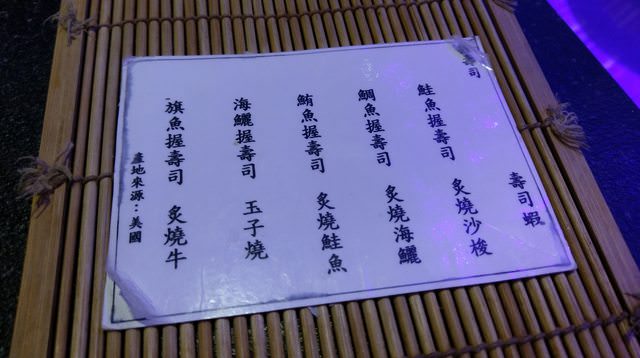 壽司
壽司蝦
鮭魚握壽司 炙燒沙梭
鯛魚握壽司 炙燒海鱺
鮪魚握壽司 炙燒鮭魚
海鱺握壽司 玉子燒
旗魚握壽司 炙燒牛
產地來源：美國